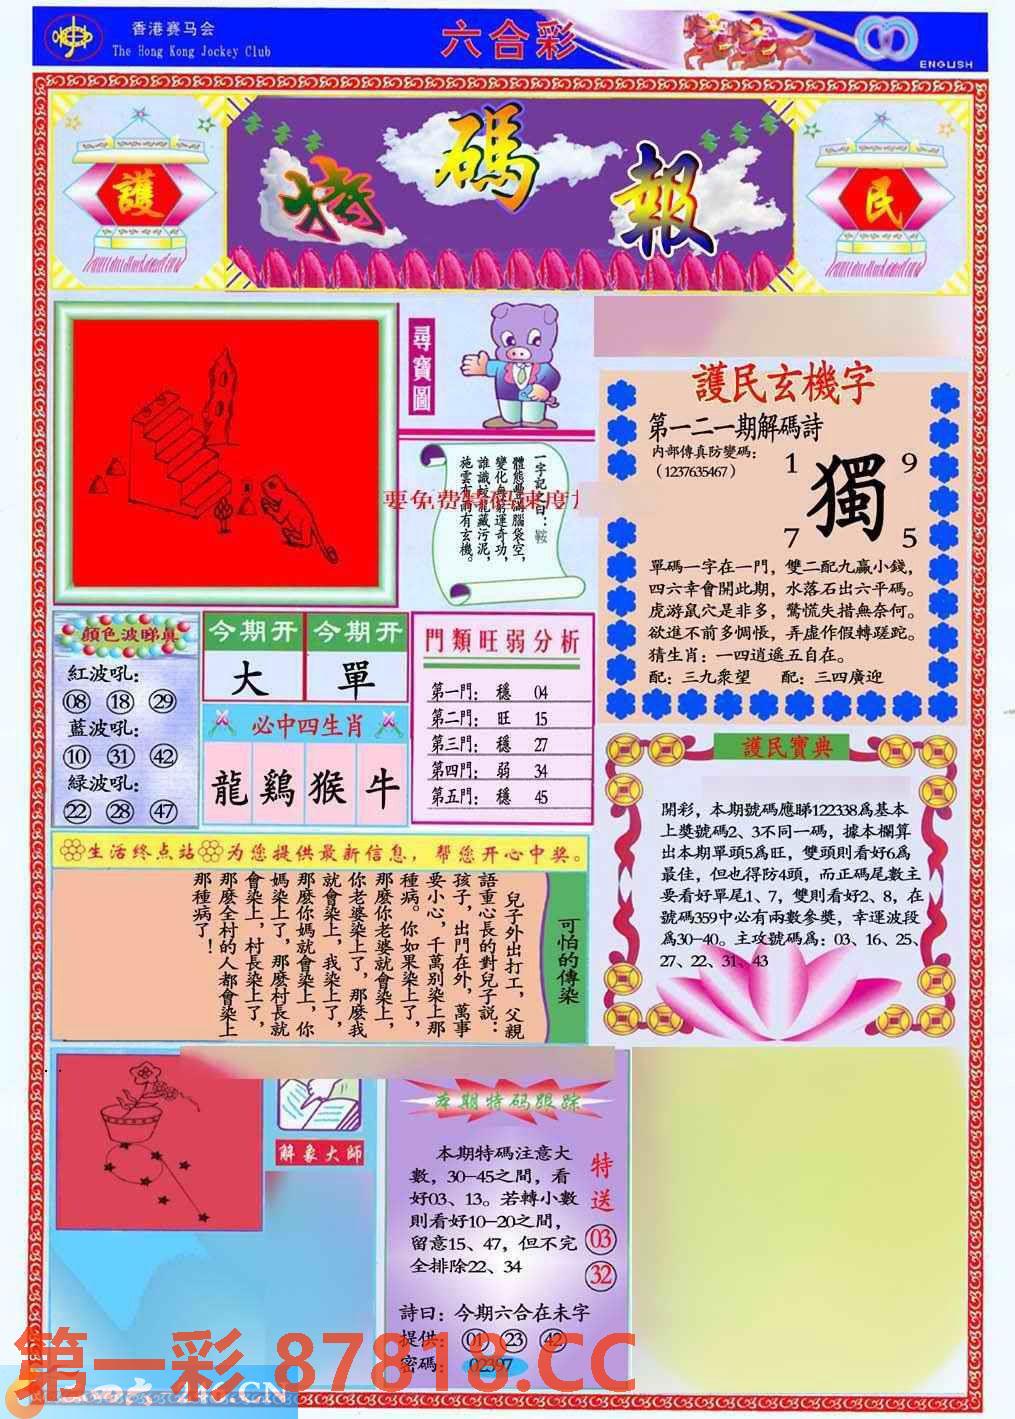 香港赛马会
The Hong Kong Jockey Club
六合彩
ENGLISH
護
特碼報
民
尋寶圖
一字記之曰：鞍
體態豐滿腦袋空，
變化無窮運奇功，
誰識蛟龍藏污泥，
施雲布雨有玄機。
要免费特码速度加
護民玄機字
第一二一期解碼詩
内部傳真防變碼：
（1237635467）
1 9
獨
7 5
單碼一字在一門，雙二配九贏小錢，
四六幸會開此期，水落石出六平碼。
虎游鼠穴是非多，驚慌失措無奈何。
欲進不前多惆悵，弄虛作假轉蹉跎。
猜生肖：一四逍遥五自在。
配：三九衆望 配：三四廣迎
顔色波睇真
紅波吼：
08 18 29
藍波吼：
10 31 42
緑波吼：
22 28 47
今期开 今期开
大 單
必中四生肖
龍 鷄 猴 牛
門類旺弱分析
第一門： 穩 04
第二門： 旺 15
第三門： 穩 27
第四門： 弱 34
第五門： 穩 45
護民寶典
開彩，本期號碼應睇122338爲基本
上獎號碼2、3不同一碼，據本欄算
出本期單頭5爲旺，雙頭則看好6爲
最佳，但也得防4頭，而正碼尾數主
要看好單尾1、7，雙則看好2、8，在
號碼359中必有兩數參獎，幸運波段
爲30-40。主攻號碼爲：03、16、25、
27、22、31、43
生活终点站 为您提供最新信息，帮您开心中奖。
可怕的傳染
兒子外出打工，父親
語重心長的對兒子說：
孩子，出門在外，萬事
要小心，千萬别染上那
種病。你如果染上了，
那麼你老婆就會染上，
你老婆染上了，那麼我
就會染上，我染上了，
那麼你媽就會染上，你
媽染上了，那麼村長就
會染上，村長染上了，
那麼全村的人都會染上
那種病了！
解象大師
本期特码跟踪
本期特碼注意大
數，30-45之間，看
好03、13。若轉小數
則看好10-20之間，
留意15、47，但不完
全排除22、34
特送
03
32
詩曰：今期六合在未字
提供： 01 23 42
密碼： 02397
第一彩 87818.CC